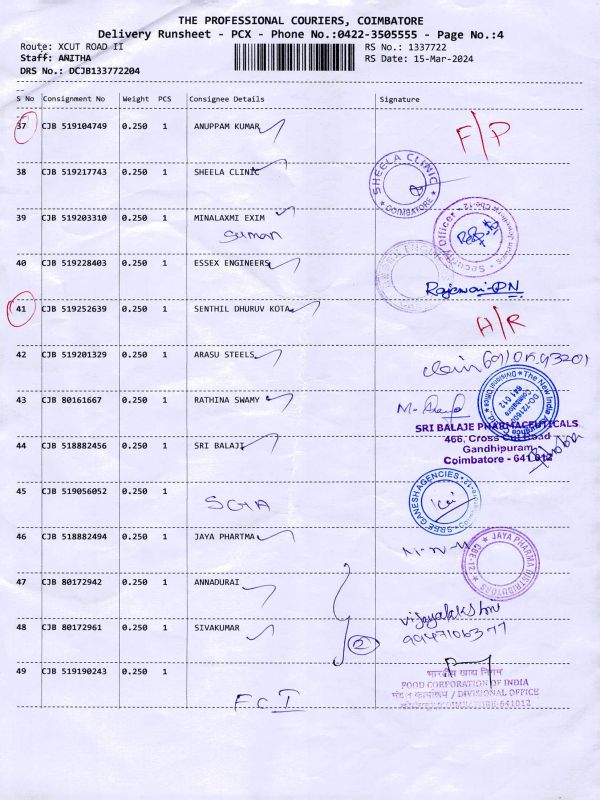 THE PROFESSIONAL COURIERS, COIMBATORE
Delivery Runsheet - PCX - Phone No.:0422-3505555 - Page No.:4
Route: XCUT ROAD II RS No.: 1337722
Staff: ANITHA RS Date: 15-Mar-2024
DRS No.: DCJB133772204
S No Consignment No Weight PCS Consignee Details Signature
37 CJB 519104749 0.250 1 ANUPPAM KUMAR F/P
38 CJB 519217743 0.250 1 SHEELA CLINIC
SHEELA CLINIC * COIMBATORE *
39 CJB 519203310 0.250 1 MINALAXMI EXIM
Suman
Security Officer
40 CJB 519228403 0.250 1 ESSEX ENGINEERS
41 CJB 519252639 0.250 1 SENTHIL DHURUV KOTA
A/R
42 CJB 519201329 0.250 1 ARASU STEELS
43 CJB 80161667 0.250 1 RATHINA SWAMY
The New India
Coimbatore
641 012
SRI BALAJE PHARMACEUTICALS
466, Cross Cut Road
Gandhipuram
Coimbatore - 641 012
44 CJB 518882456 0.250 1 SRI BALAJI
45 CJB 519056052 0.250 1
SREE GANESH AGENCIES
46 CJB 518882494 0.250 1 JAYA PHARTMA
JAYA PHARMA DISTRIBUTORS * CBE-12 *
47 CJB 80172942 0.250 1 ANNADURAI
Vijayalakshmi
48 CJB 80172961 0.250 1 SIVAKUMAR 2
99947106377
49 CJB 519190243 0.250 1
F.C.I
भारतीय खाद्य निगम
FOOD CORPORATION OF INDIA
मंडल कार्यालय / DIVISIONAL OFFICE